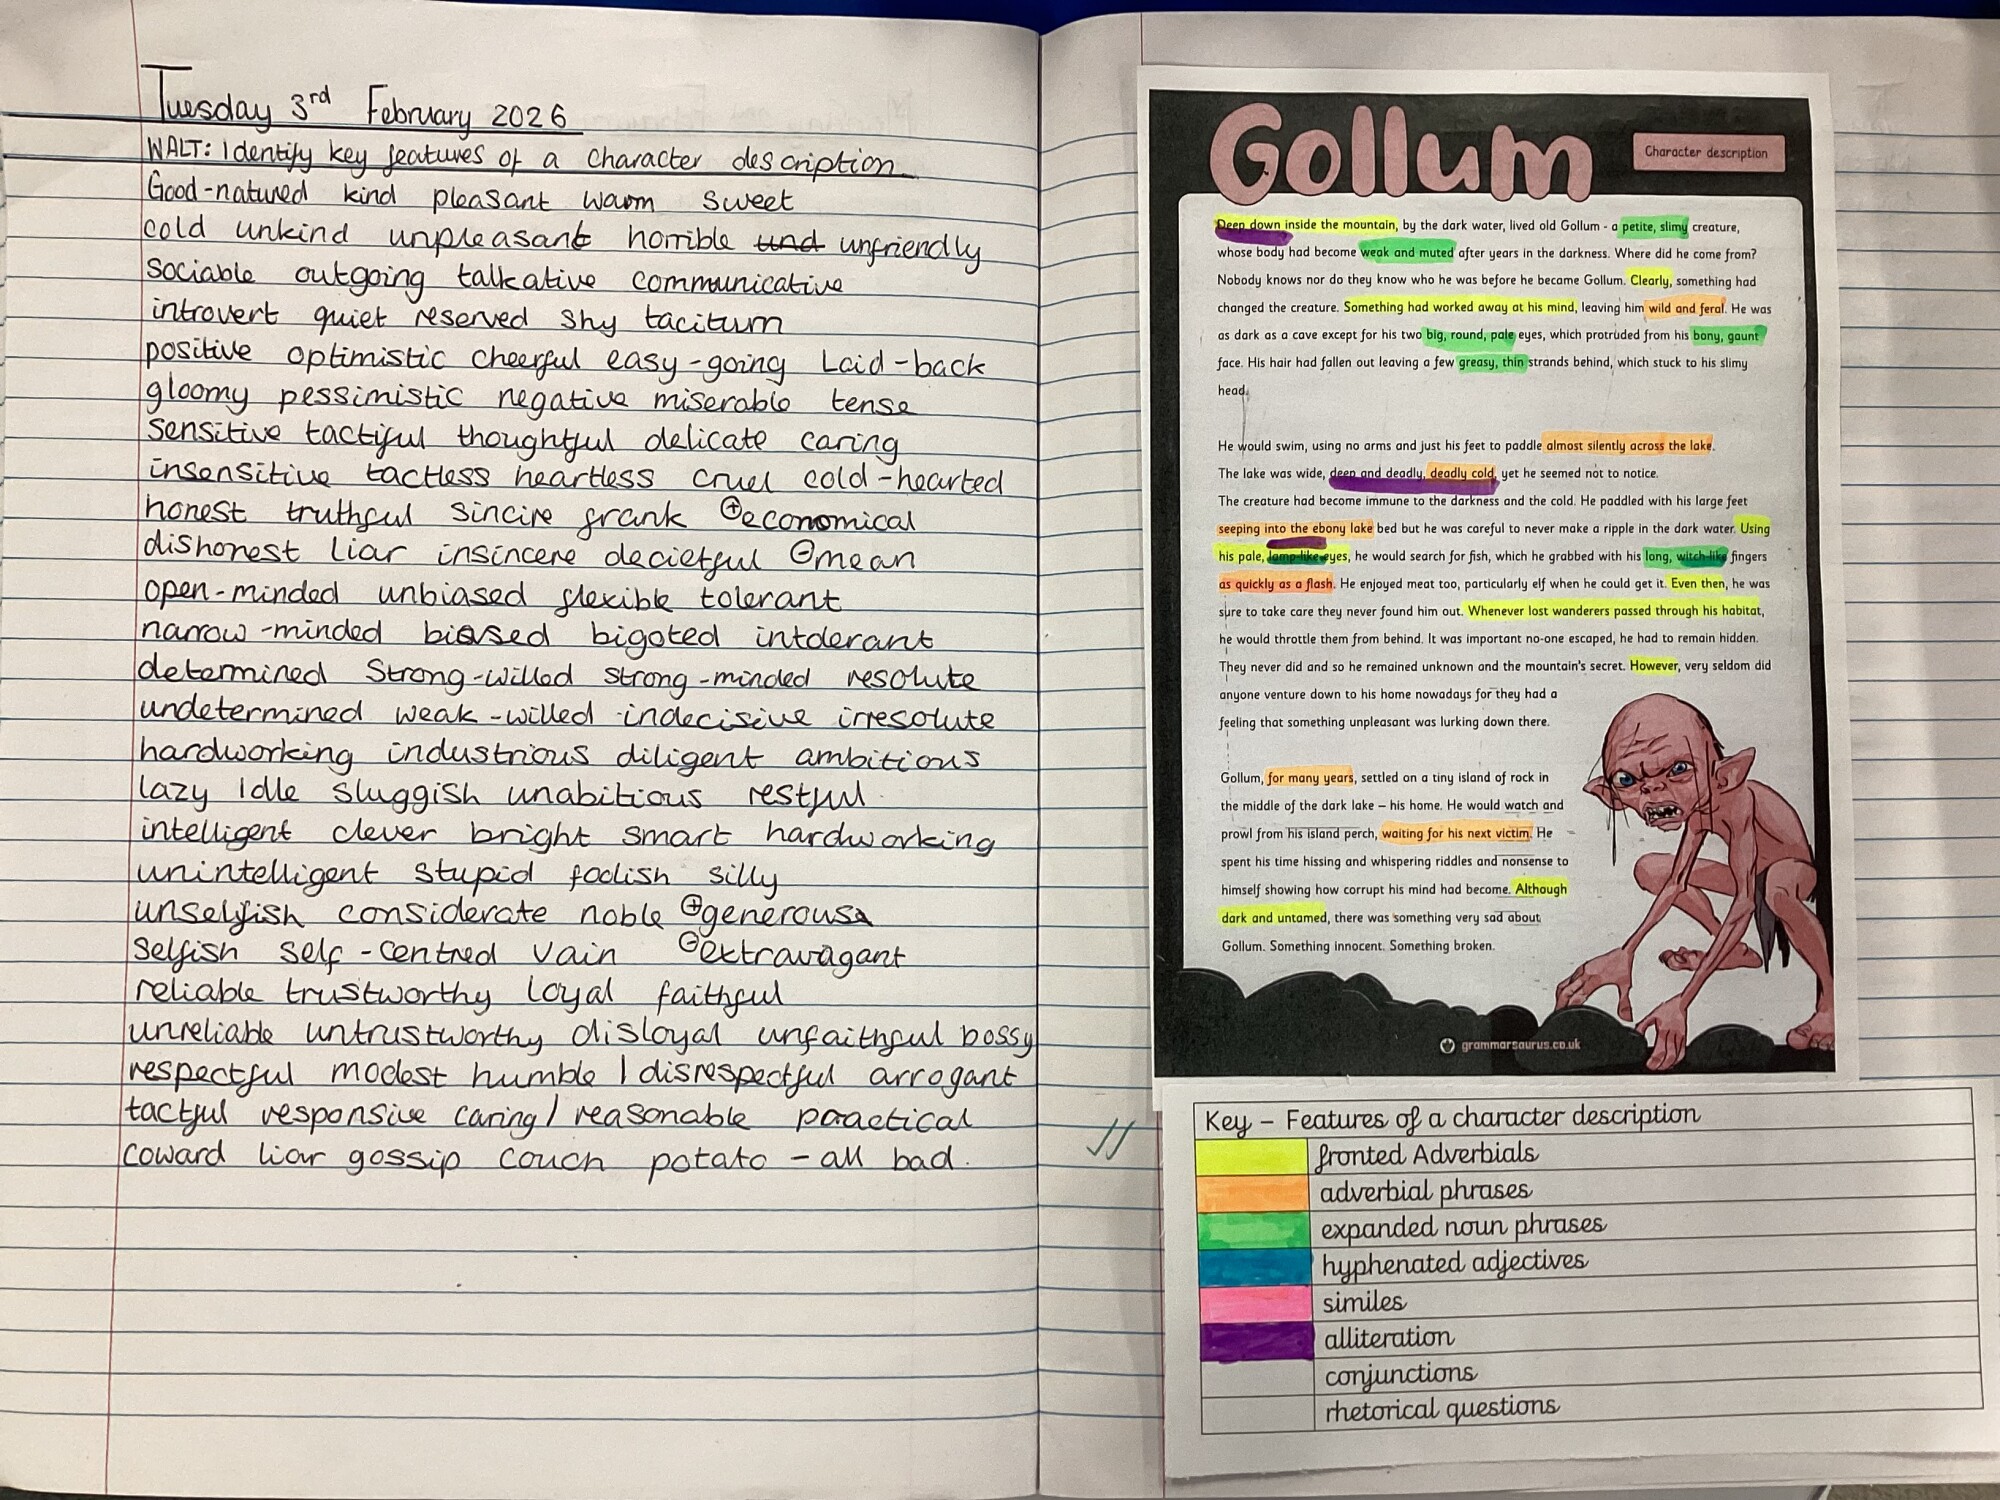 Tuesday 3rd February 2026
WALT: Identify key features of a character description
Good-natured kind pleasant warm sweet
cold unkind unpleasant horrible und unfriendly
sociable outgoing talkative communicative
introvert quiet reserved shy taciturn
positive optimistic cheerful easy-going Laid-back
gloomy pessimistic negative miserable tense
sensitive tactiful thoughtful delicate caring
insensitive tactless heartless cruel cold-hearted
honest truthful sincire frank +economical
dishonest liar insincere decietful -mean
open-minded unbiased flexible tolerant
narrow-minded biased bigoted intolerant
determined Strong-willed strong-minded resolute
undetermined weak-willed indecisive irresolute
hardworking industrious diligent ambitious
lazy Idle sluggish unabitious restful
intelligent clever bright smart hardworking
unintelligent stupid foolish silly
unselfish considerate noble +generous
selfish self-centred vain -extravagant
reliable trustworthy loyal faithful
unreliable untrustworthy disloyal unfaithful bossy
respectful modest humble / disrespectful arrogant
tactful responsive caring / reasonable practical
coward liar gossip couch potato - all bad.
Gollum
Character description
Deep down inside the mountain, by the dark water, lived old Gollum - a petite, slimy creature,
whose body had become weak and muted after years in the darkness. Where did he come from?
Nobody knows nor do they know who he was before he became Gollum. Clearly, something had
changed the creature. Something had worked away at his mind, leaving him wild and feral. He was
as dark as a cave except for his two big, round, pale eyes, which protruded from his bony, gaunt
face. His hair had fallen out leaving a few greasy, thin strands behind, which stuck to his slimy
head.
He would swim, using no arms and just his feet to paddle almost silently across the lake.
The lake was wide, deep and deadly, deadly cold, yet he seemed not to notice.
The creature had become immune to the darkness and the cold. He paddled with his large feet
seeping into the ebony lake bed but he was careful to never make a ripple in the dark water. Using
his pale, lamp-like eyes, he would search for fish, which he grabbed with his long, witch-like fingers
as quickly as a flash. He enjoyed meat too, particularly elf when he could get it. Even then, he was
sure to take care they never found him out. Whenever lost wanderers passed through his habitat,
he would throttle them from behind. It was important no-one escaped, he had to remain hidden.
They never did and so he remained unknown and the mountain's secret. However, very seldom did
anyone venture down to his home nowadays for they had a
feeling that something unpleasant was lurking down there.
Gollum, for many years, settled on a tiny island of rock in
the middle of the dark lake – his home. He would watch and
prowl from his island perch, waiting for his next victim. He
spent his time hissing and whispering riddles and nonsense to
himself showing how corrupt his mind had become. Although
dark and untamed, there was something very sad about
Gollum. Something innocent. Something broken.
grammarsaurus.co.uk
Key – Features of a character description
fronted Adverbials
adverbial phrases
expanded noun phrases
hyphenated adjectives
similes
alliteration
conjunctions
rhetorical questions